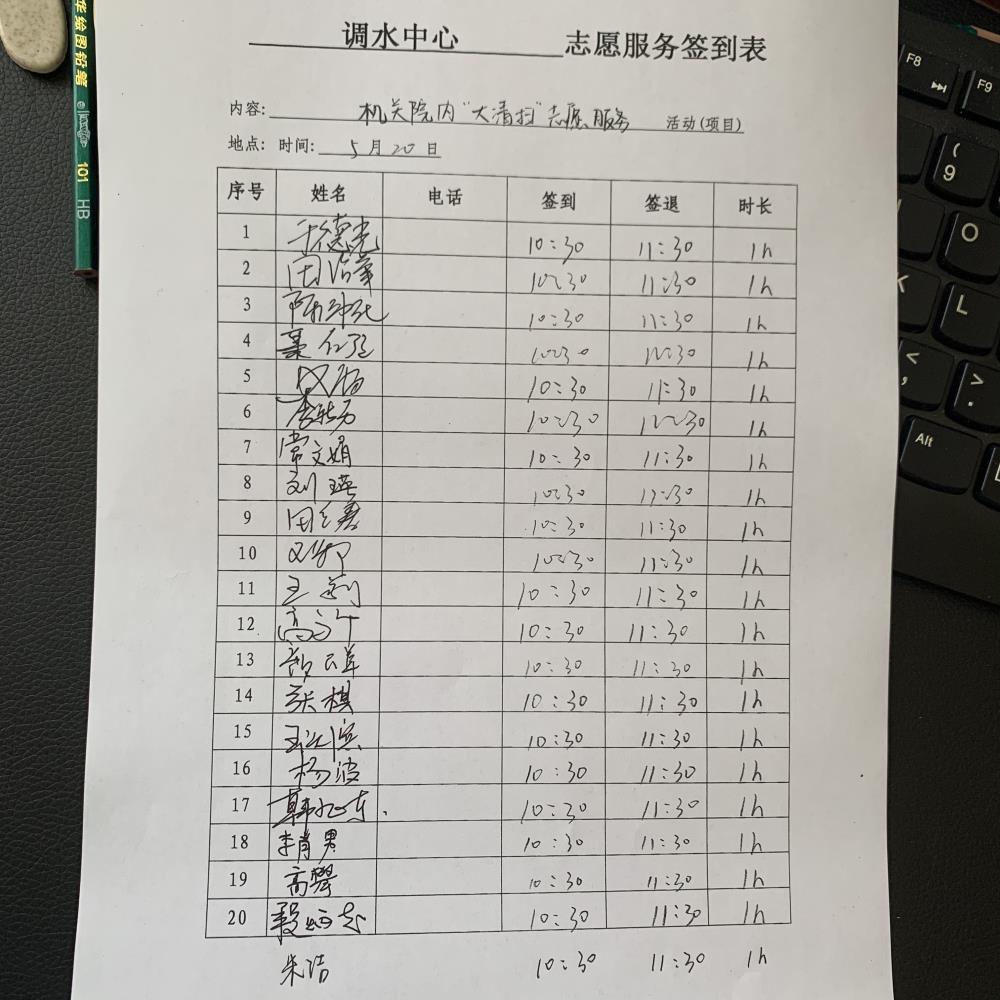 华绘图铅笔 101 HB
调水中心 志愿服务签到表
内容: 机关院内"大清扫"志愿服务 活动(项目)
地点: 时间: 5月20日
序号 姓名 电话 签到 签退 时长
1 于德光 10:30 11:30 1h
2 田浩 10:30 11:30 1h
3 10:30 11:30 1h
4 10:30 11:30 1h
5 10:30 11:30 1h
6 10:30 11:30 1h
7 常文娟 10:30 11:30 1h
8 刘瑛 10:30 11:30 1h
9 田 10:30 11:30 1h
10 10:30 11:30 1h
11 王莉 10:30 11:30 1h
12 高 10:30 11:30 1h
13 10:30 11:30 1h
14 张棋 10:30 11:30 1h
15 王 滨 10:30 11:30 1h
16 杨波 10:30 11:30 1h
17 韩 东. 10:30 11:30 1h
18 李肖男 10:30 11:30 1h
19 高攀 10:30 11:30 1h
20 10:30 11:30 1h
朱洁 10:30 11:30 1h
F8
F9
( 9
O
K
L
< ,
> .
Alt